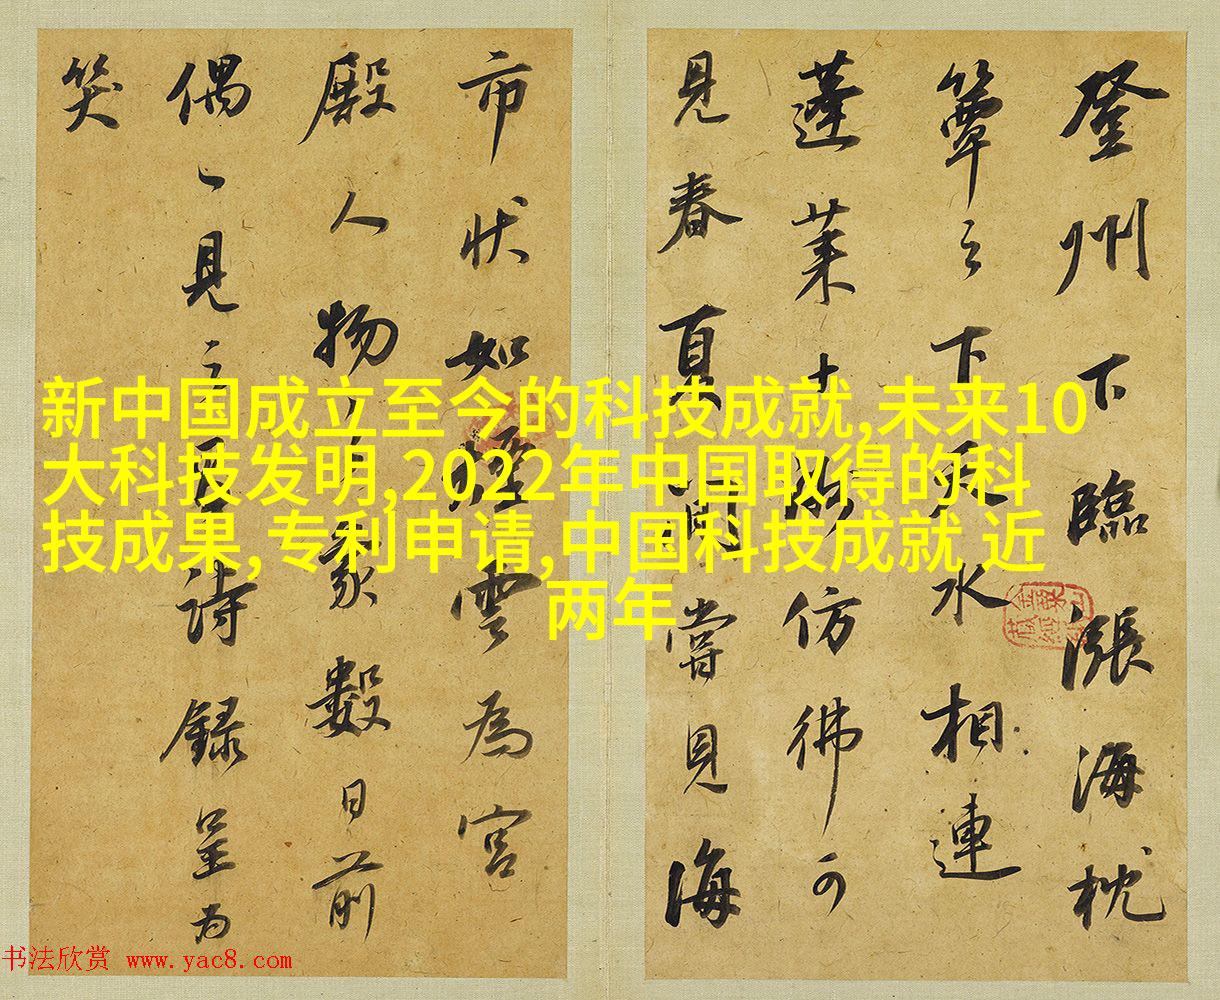 登州下臨漲海枕
簟之下天水相連
蓬莱仿彿可
見春夏間嘗見海
市状如煙雲為宮
殿人物之象數日前
偶〻見之詩録呈為
笑
新中国成立至今的科技成就,未来10
大科技发明,2022年中国取得的科
技成果,专利申请,中国科技成就 近
两年
书法欣赏 www.yac8.com